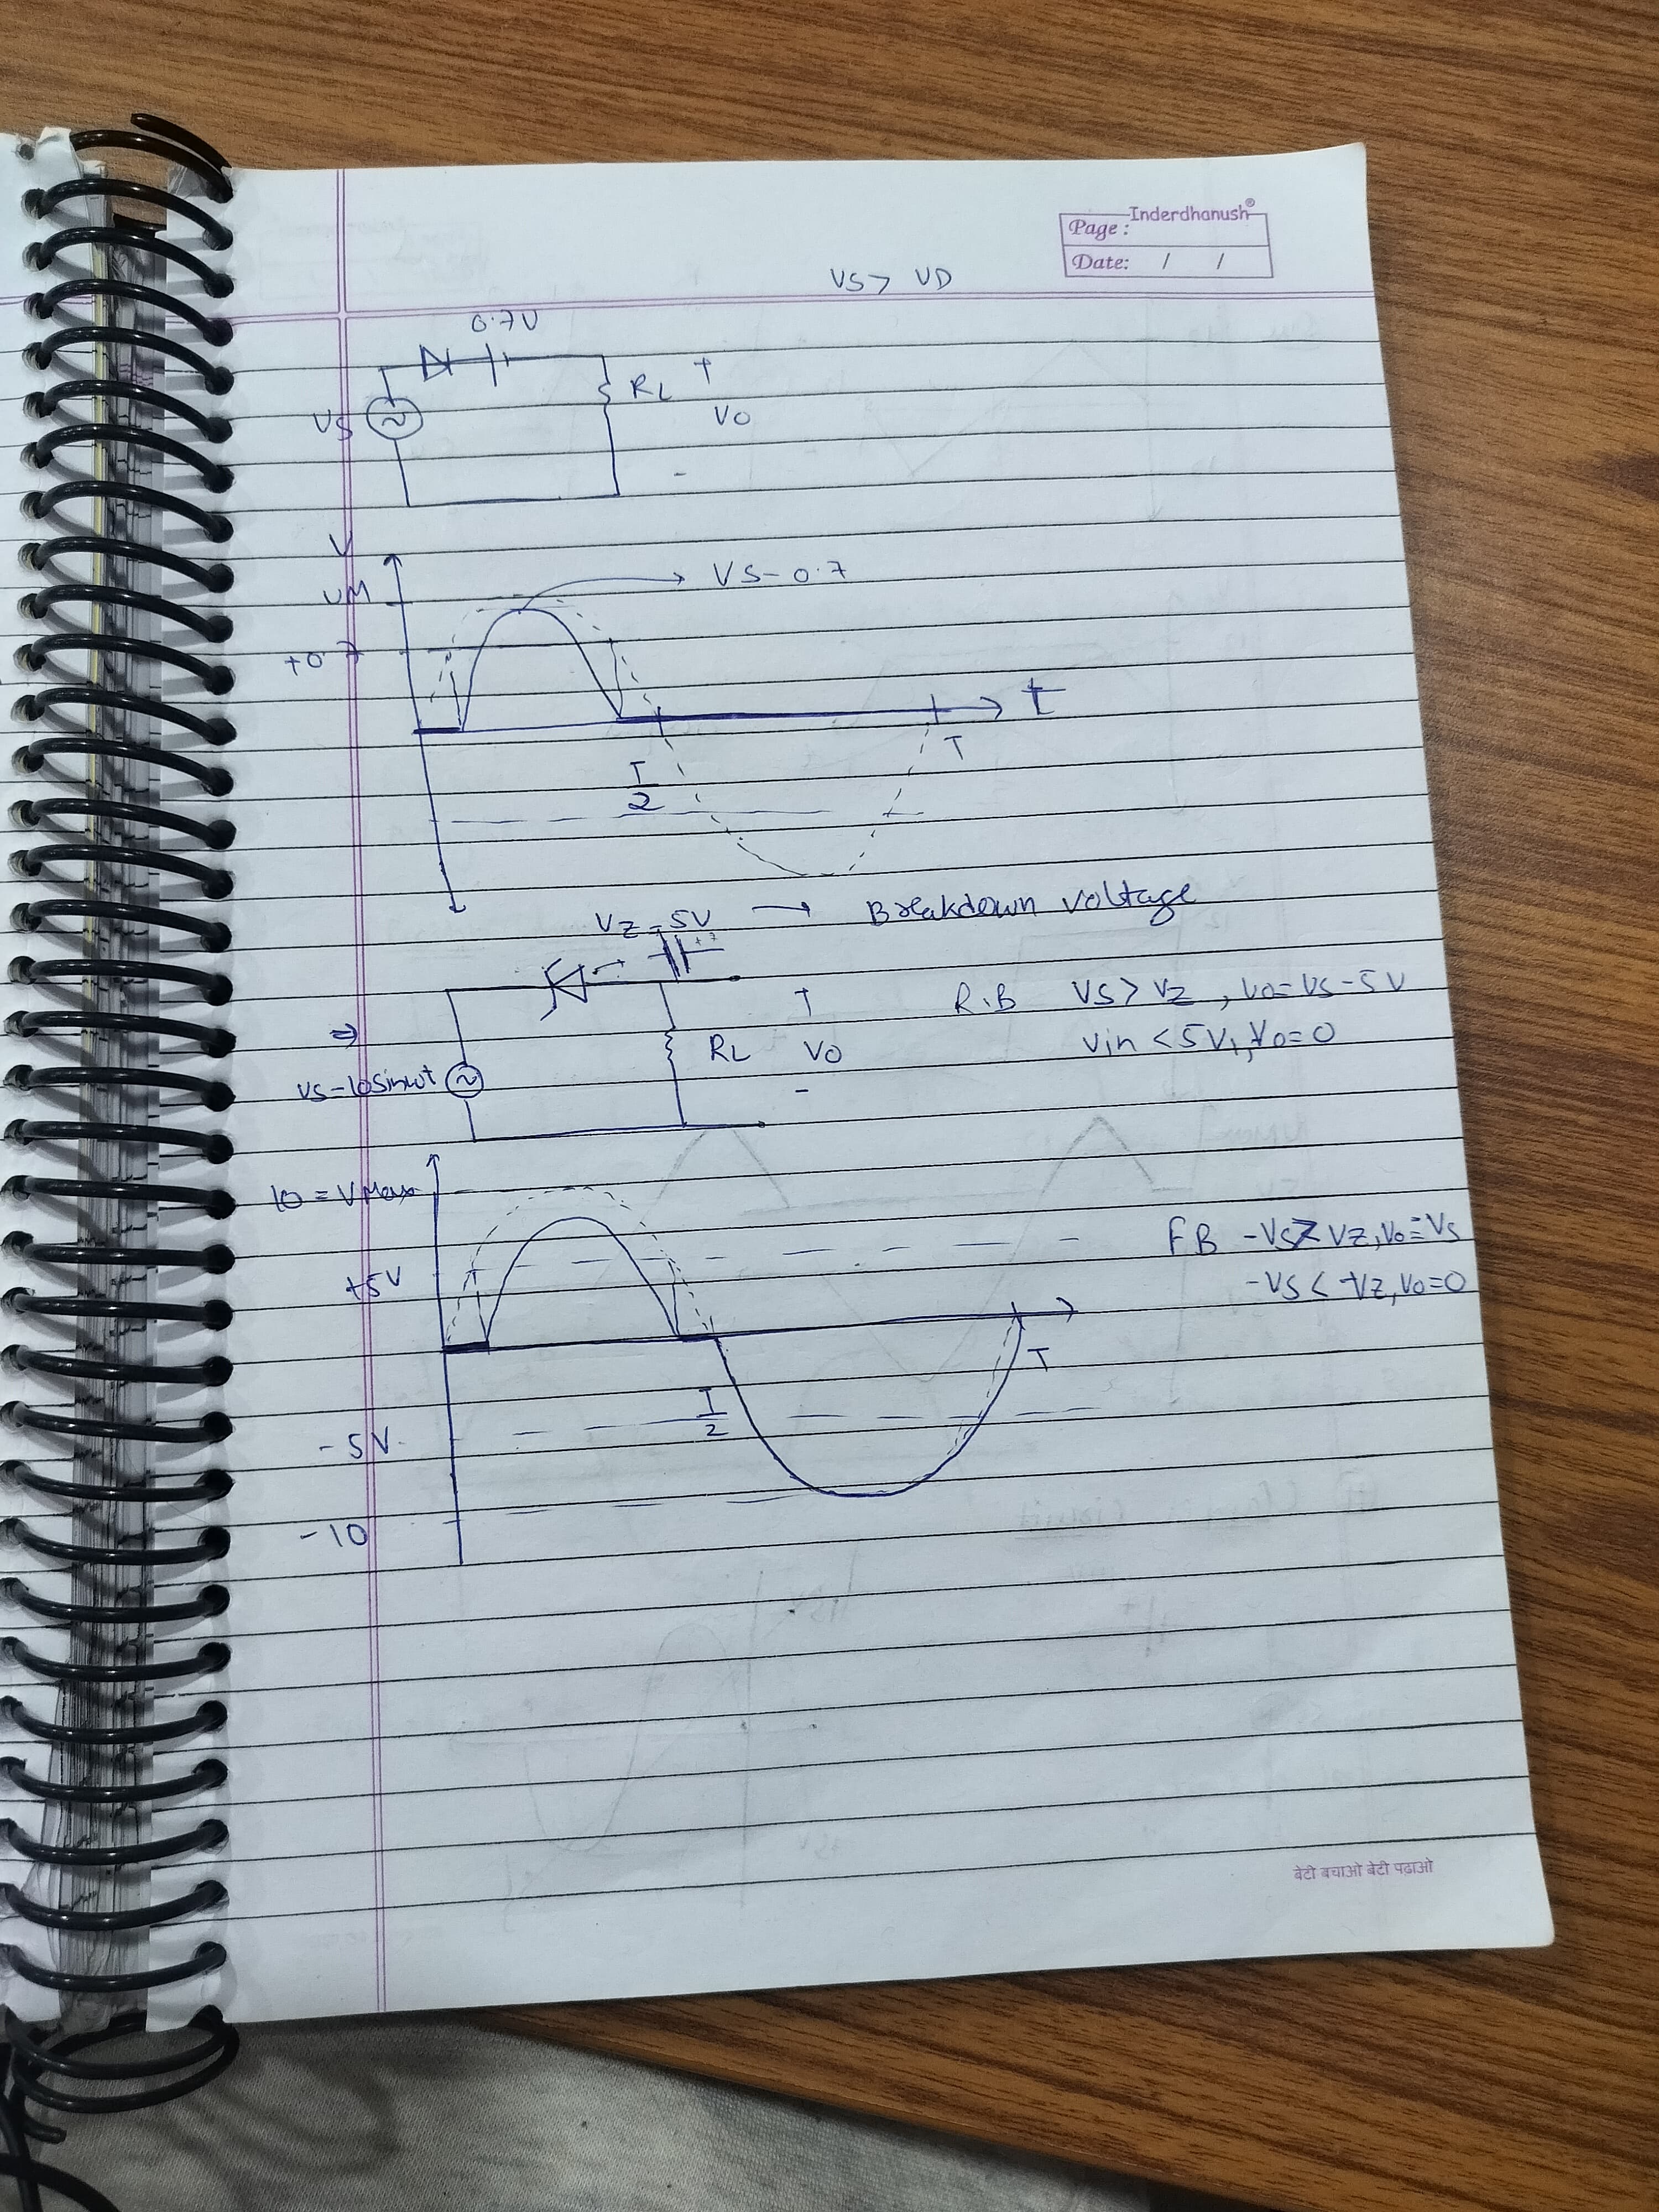 Inderdhanush®
Page :
Date: / /
VS > VD
0.7V
VS
RL
+
VO
-
V
VM
VS-0.7
+0.7
t
T/2
T
VZ = 5V → Breakdown voltage
⇒
VS=10Sinwt
RL
+
VO
-
R.B VS > VZ, VO=VS-5V
Vin < 5V, VO=0
10 = VMax
+5V
FB -VS > VZ, VO=VS
-VS < -VZ, VO=0
T
T/2
-5V
-10
बेटी बचाओ बेटी पढ़ाओ